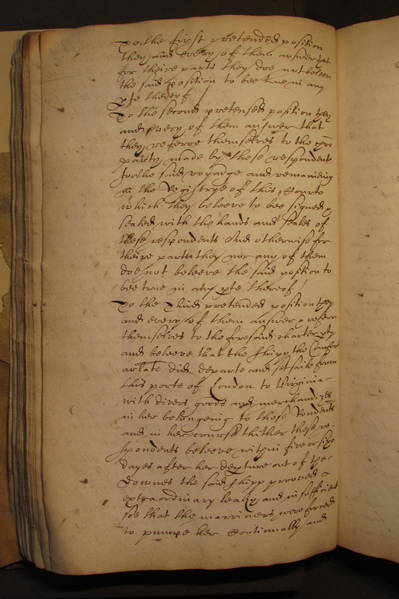 To the first pretended position
they and every of them answer that
for theire parts they doe not beleeve
the said position to bee true in any
pte thereof /
To the second pretensed position they
and every of them answer that
they referre themselves to the
party made by these respondents
for the said voyadge and remaining
in the Registrye of this Courte
which they beleeve to bee signed
sealed with the hands and seales of
these respondents And otherwise for
theire parts they nor any of them
doe not beleeve the said position to
bee true in any pte thereof /
To the third pretended position they
and every of them answer & referr
themselves to the foresaid charter pty
and beleeve that the shipp the
did departe and set saile from
this porte of London to Virginia
with divers goods and merchandizes
in her belonginge to these
and in her course thither these re-
spondents beleeve within five or sixe
dayes after her depture out of the
Downes the said shipp proved
extraordinary leaky and insufficient
soe that the marriners were forced
to pumpe her continually and